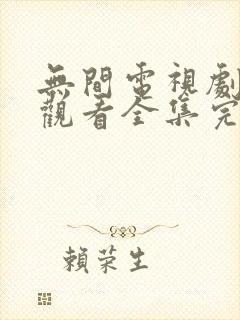 無間電視劇
觀看全集完
賴荣生